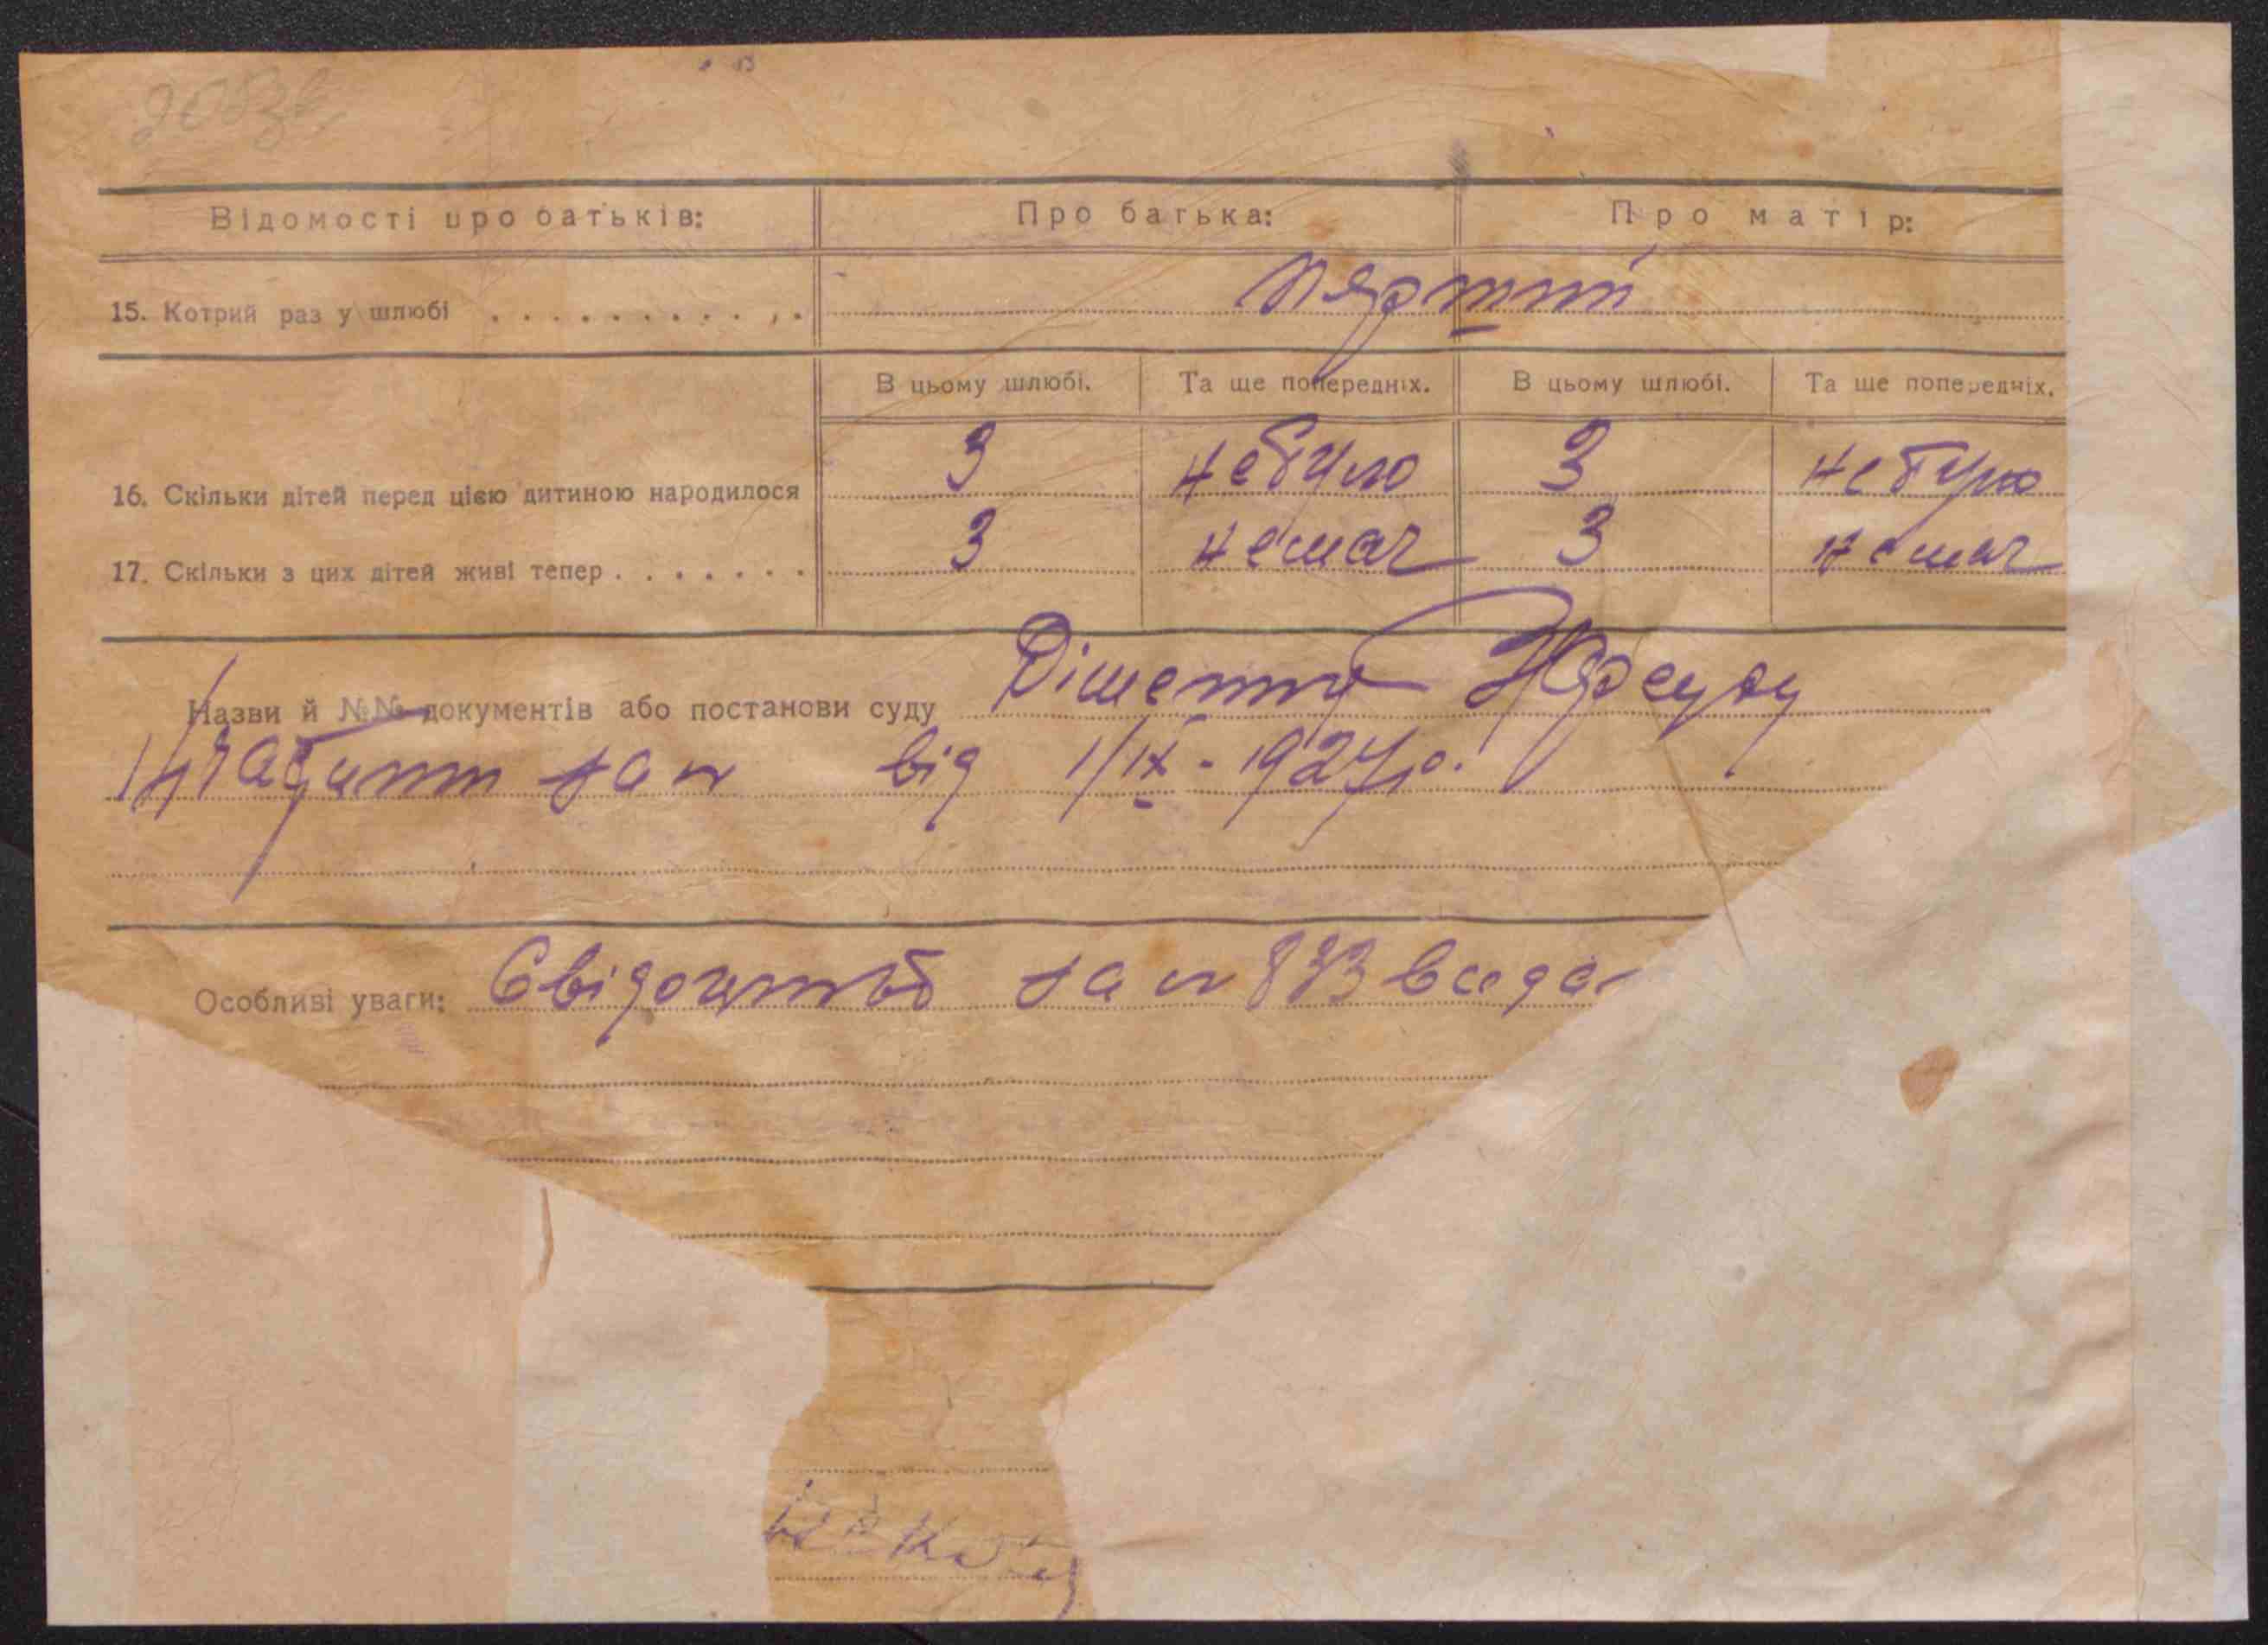 Відомості про батьків: Про батька: Про матір:
15. Котрий раз у шлюбі . . . . . . . . . . . . перший
В цьому шлюбі. Та ще попередніх. В цьому шлюбі. Та ще попередніх.
16. Скільки дітей перед цією дитиною народилося 3 небуло 3 небуло
17. Скільки з цих дітей живі тепер . . . . . . . 3 немає 3 немає
Назви й №№ документів або постанови суду
за № від 1/IX - 1927р.
Особливі уваги: Свідоцтво за № 873 видан